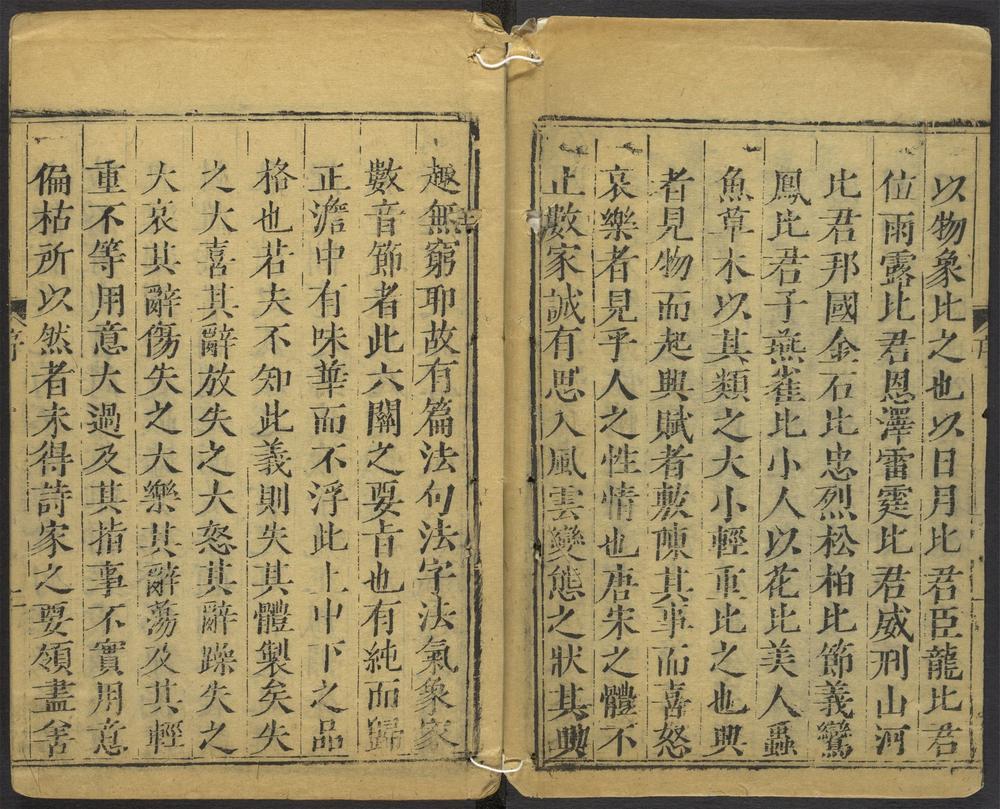 以物象比之也以日月比君臣龍比君
位雨露比君恩澤雷霆比君威刑山河
比君邦國金石比忠烈松柏比節義鸞
鳳比君子燕雀比小人以花比美人蟲
魚草木以其類之大小輕重比之也興
者見物而起興賦者敷陳其事而喜怒
哀樂者見乎人之性情也唐宋之體不
止數家誠有思入風雲變態之狀其興
趣無窮耶故有篇法句法字法氣象家
數音節者此六關之要旨也有純而歸
正澹中有味華而不浮此上中下之品
格也若夫不知此義則失其體製矣失
之大喜其辭放失之大怒其辭躁失之
大哀其辭傷失之大樂其辭蕩及其輕
重不等用意大過及其指事不實用意
偏枯所以然者未得詩家之要領盡舍